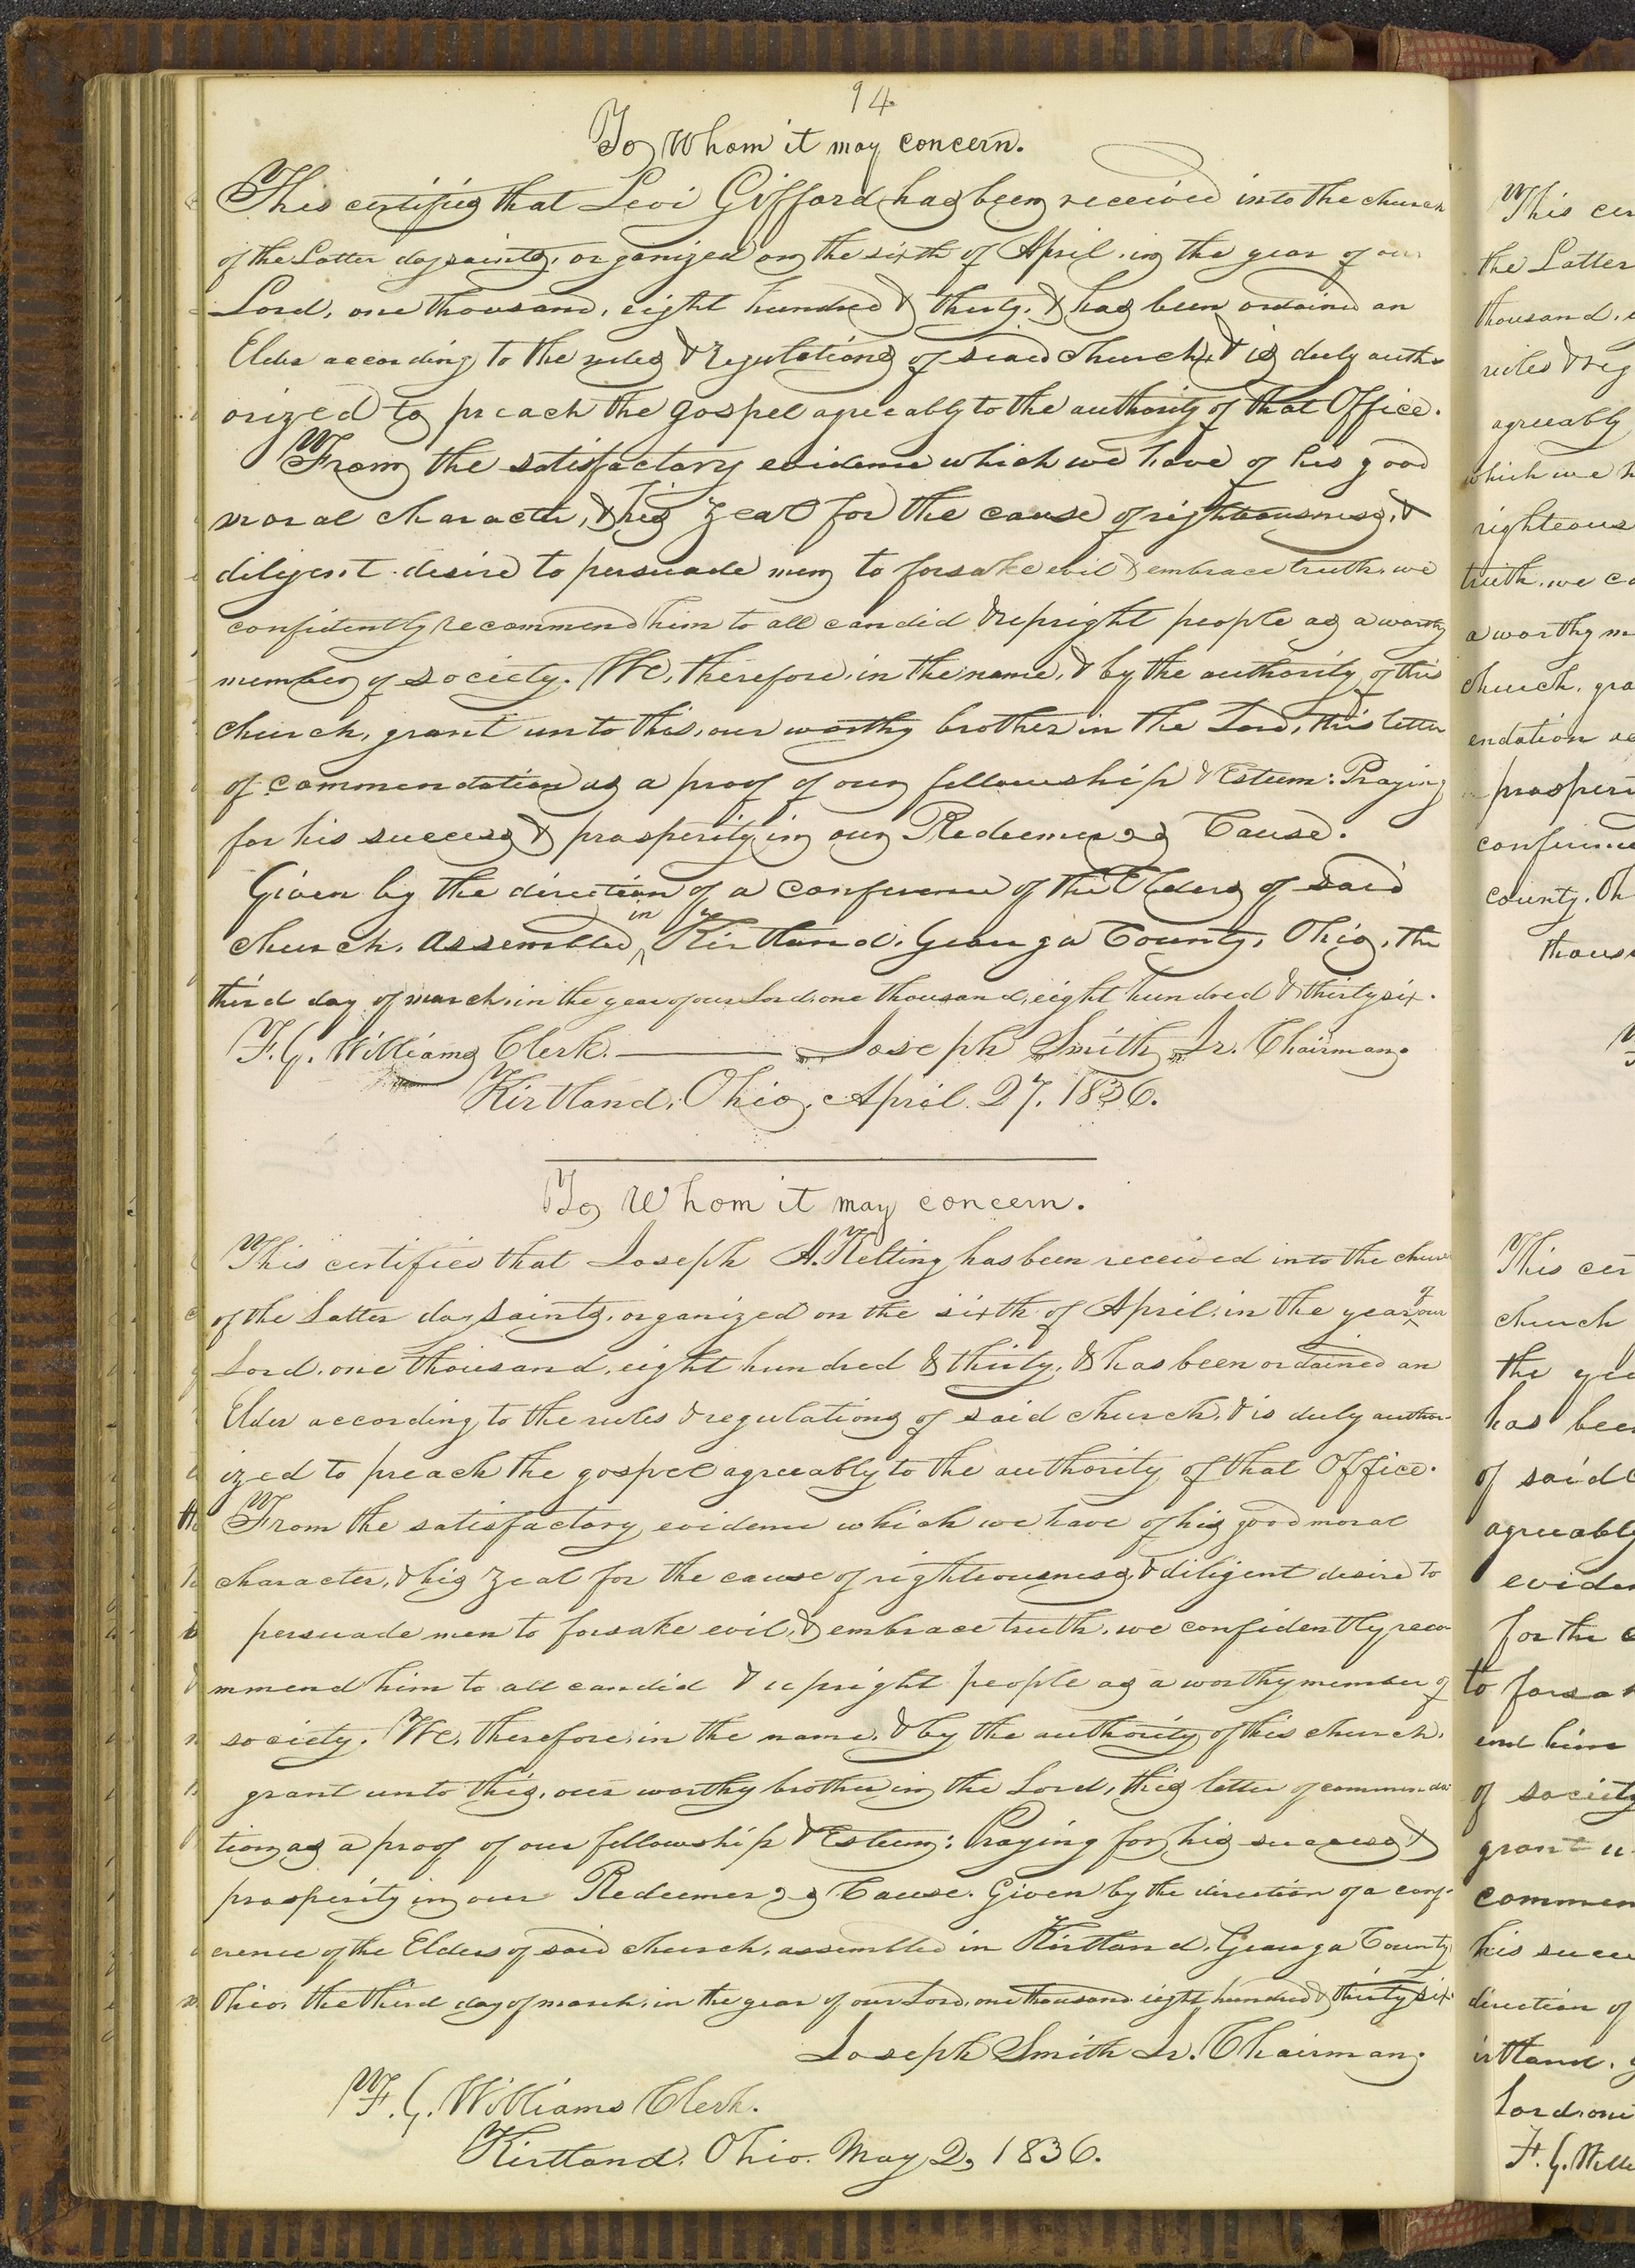 94
To Whom it may concern.
This certifies that Levi Gifford has been received into the church
of the Latter day saints, organized on the sixth of April, in the year of our
Lord, one thousand, eight hundred & thirty, & has been ordained an
Elder according to the rules & regulations of said church, & is duly auth-
orized to preach the gospel agreeably to the authority of that Office.
From the satisfactory evidence which we have of his good
moral character, & his zeal for the cause of righteousness, &
diligent desire to persuade men to forsake evil & embrace truth, we
confidently recommend him to all candid & upright people as a worthy
member of society. We, therefore, in the name, & by the authority of this
church, grant unto this, our worthy brother in the Lord, this letter
of commendation as a proof of our fellowship & Esteem: Praying
for his success & prosperity in our Redeemer's Cause.
Given by the direction of a conference of the Elders of said
church, assembled in Kirtland, Geauga County, Ohio, the
third day of march, in the year of our Lord, one thousand, eight hundred & thirty six.
F. G. Williams Clerk. Joseph Smith Jr. Chairman.
Kirtland, Ohio, April 27, 1836.
To Whom it may concern.
This certifies that Joseph A. Kelting has been received into the church
of the Latter day saints, organized on the sixth of April, in the year of our
Lord, one thousand, eight hundred & thirty, & has been ordained an
Elder according to the rules & regulations of said church, & is duly author-
ized to preach the gospel agreeably to the authority of that Office.
From the satisfactory evidence which we have of his good moral
character, & his zeal for the cause of righteousness, & diligent desire to
persuade men to forsake evil, & embrace truth, we confidently reco-
mmend him to all candid & upright people as a worthy member of
society. We, therefore, in the name, & by the authority of this church,
grant unto this, our worthy brother in the Lord, this letter of commenda-
tion as a proof of our fellowship & Esteem: Praying for his success &
prosperity in our Redeemer's Cause. Given by the direction of a conf-
erence of the Elders of said church, assembled in Kirtland, Geauga County
Ohio, the third day of march, in the year of our Lord, one thousand eight hundred & thirty six.
Joseph Smith Jr. Chairman.
F. G. Williams Clerk.
Kirtland, Ohio. May 2, 1836.
This cer
the Latter
thousand, e
rules & reg
agreeably
which we h
righteous
truth, we co
a worthy m
church, gra
endation as
prosperi
conference
county, Oh
thous
This cer
church
the yea
has bee
of said c
agreeably
eviden
for the c
to forsak
end him
of society
grant u
commen
his succe
direction of
irtland, G
Lord, one
F. G. Willi